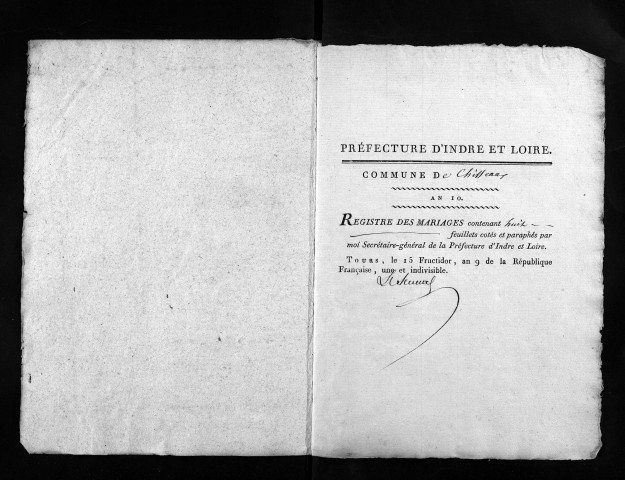 PRÉFECTURE D'INDRE ET LOIRE.
COMMUNE De Chisseaux
AN 10.
REGISTRE DES MARIAGES contenant huit
feuillets cotés et paraphés par
moi Secrétaire-général de la Préfecture d'Indre et Loire.
TOURS, le 15 Fructidor, an 9 de la République
Française, une et indivisible.